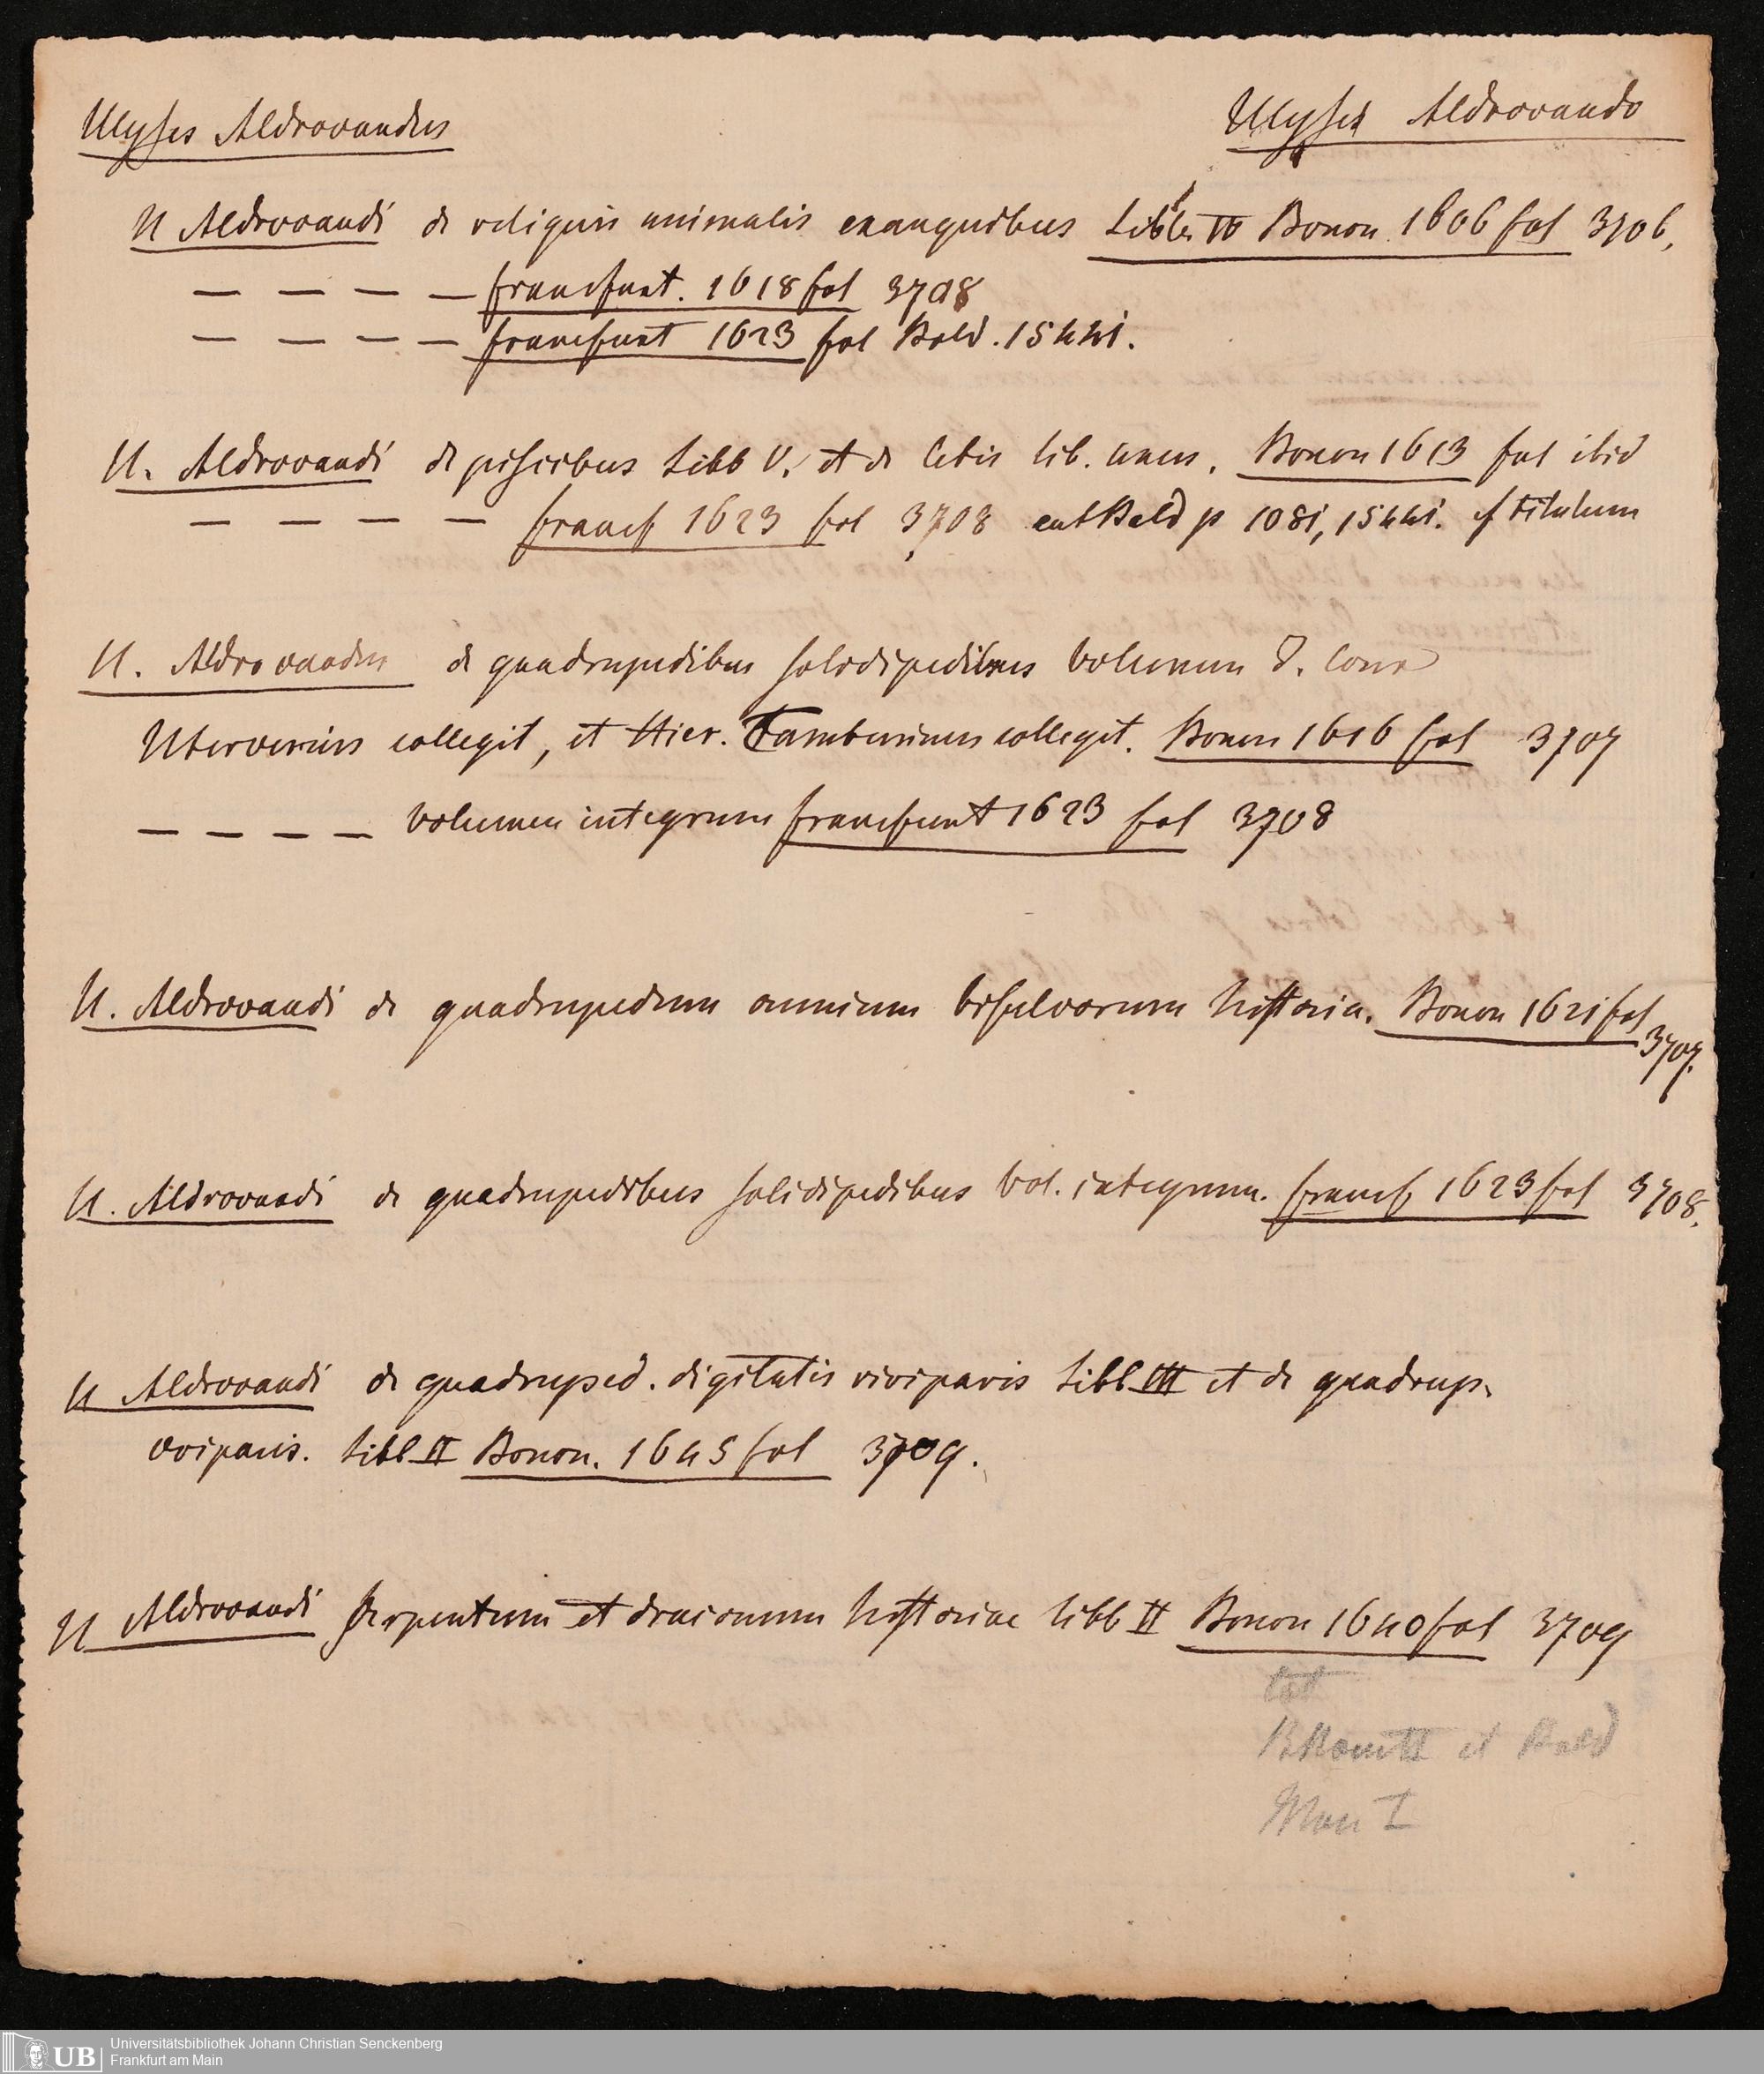 Ulysses Aldrovandus
Ulysses Aldrovando
U Aldrovandi de reliquis animalis exanguibus Libb IV Bonon 1606 fol 3706,
— — — — francfurt. 1618 fol 3708
— — — — francfurt 1623 fol Bald. 1544i.
U. Aldrovandi de piscibus Libb V. et de Cetis lib. unus. Bonon 1613 fol ibid
— — — — francf 1623 fol 3708 Bald p 108i, 1544i. cf titulum
U. Aldrovandus de quadrupedibus solidipedibus volumen J. Corn
Uterverius collegit, et Hier. Tamburinus collegit. Bonon 1616 fol 3707
— — — — volumen integrum francfurt 1623 fol 3708
U. Aldrovandi de quadrupedum omnium bisulcorum historia. Bonon 1621 fol
3707.
U. Aldrovandi de quadrupedibus solidipedibus vol. integrum. francf 1623 fol 3708.
U Aldrovandi de quadruped. digitatis viviparis Libb III et de quadrup.
oviparis. Libb II Bonon. 1645 fol 3709.
U Aldrovandi Serpentum et draconum historiae libb II Bonon 1640 fol 3709
et Bald
I
UB
Universitätsbibliothek Johann Christian Senckenberg
Frankfurt am Main